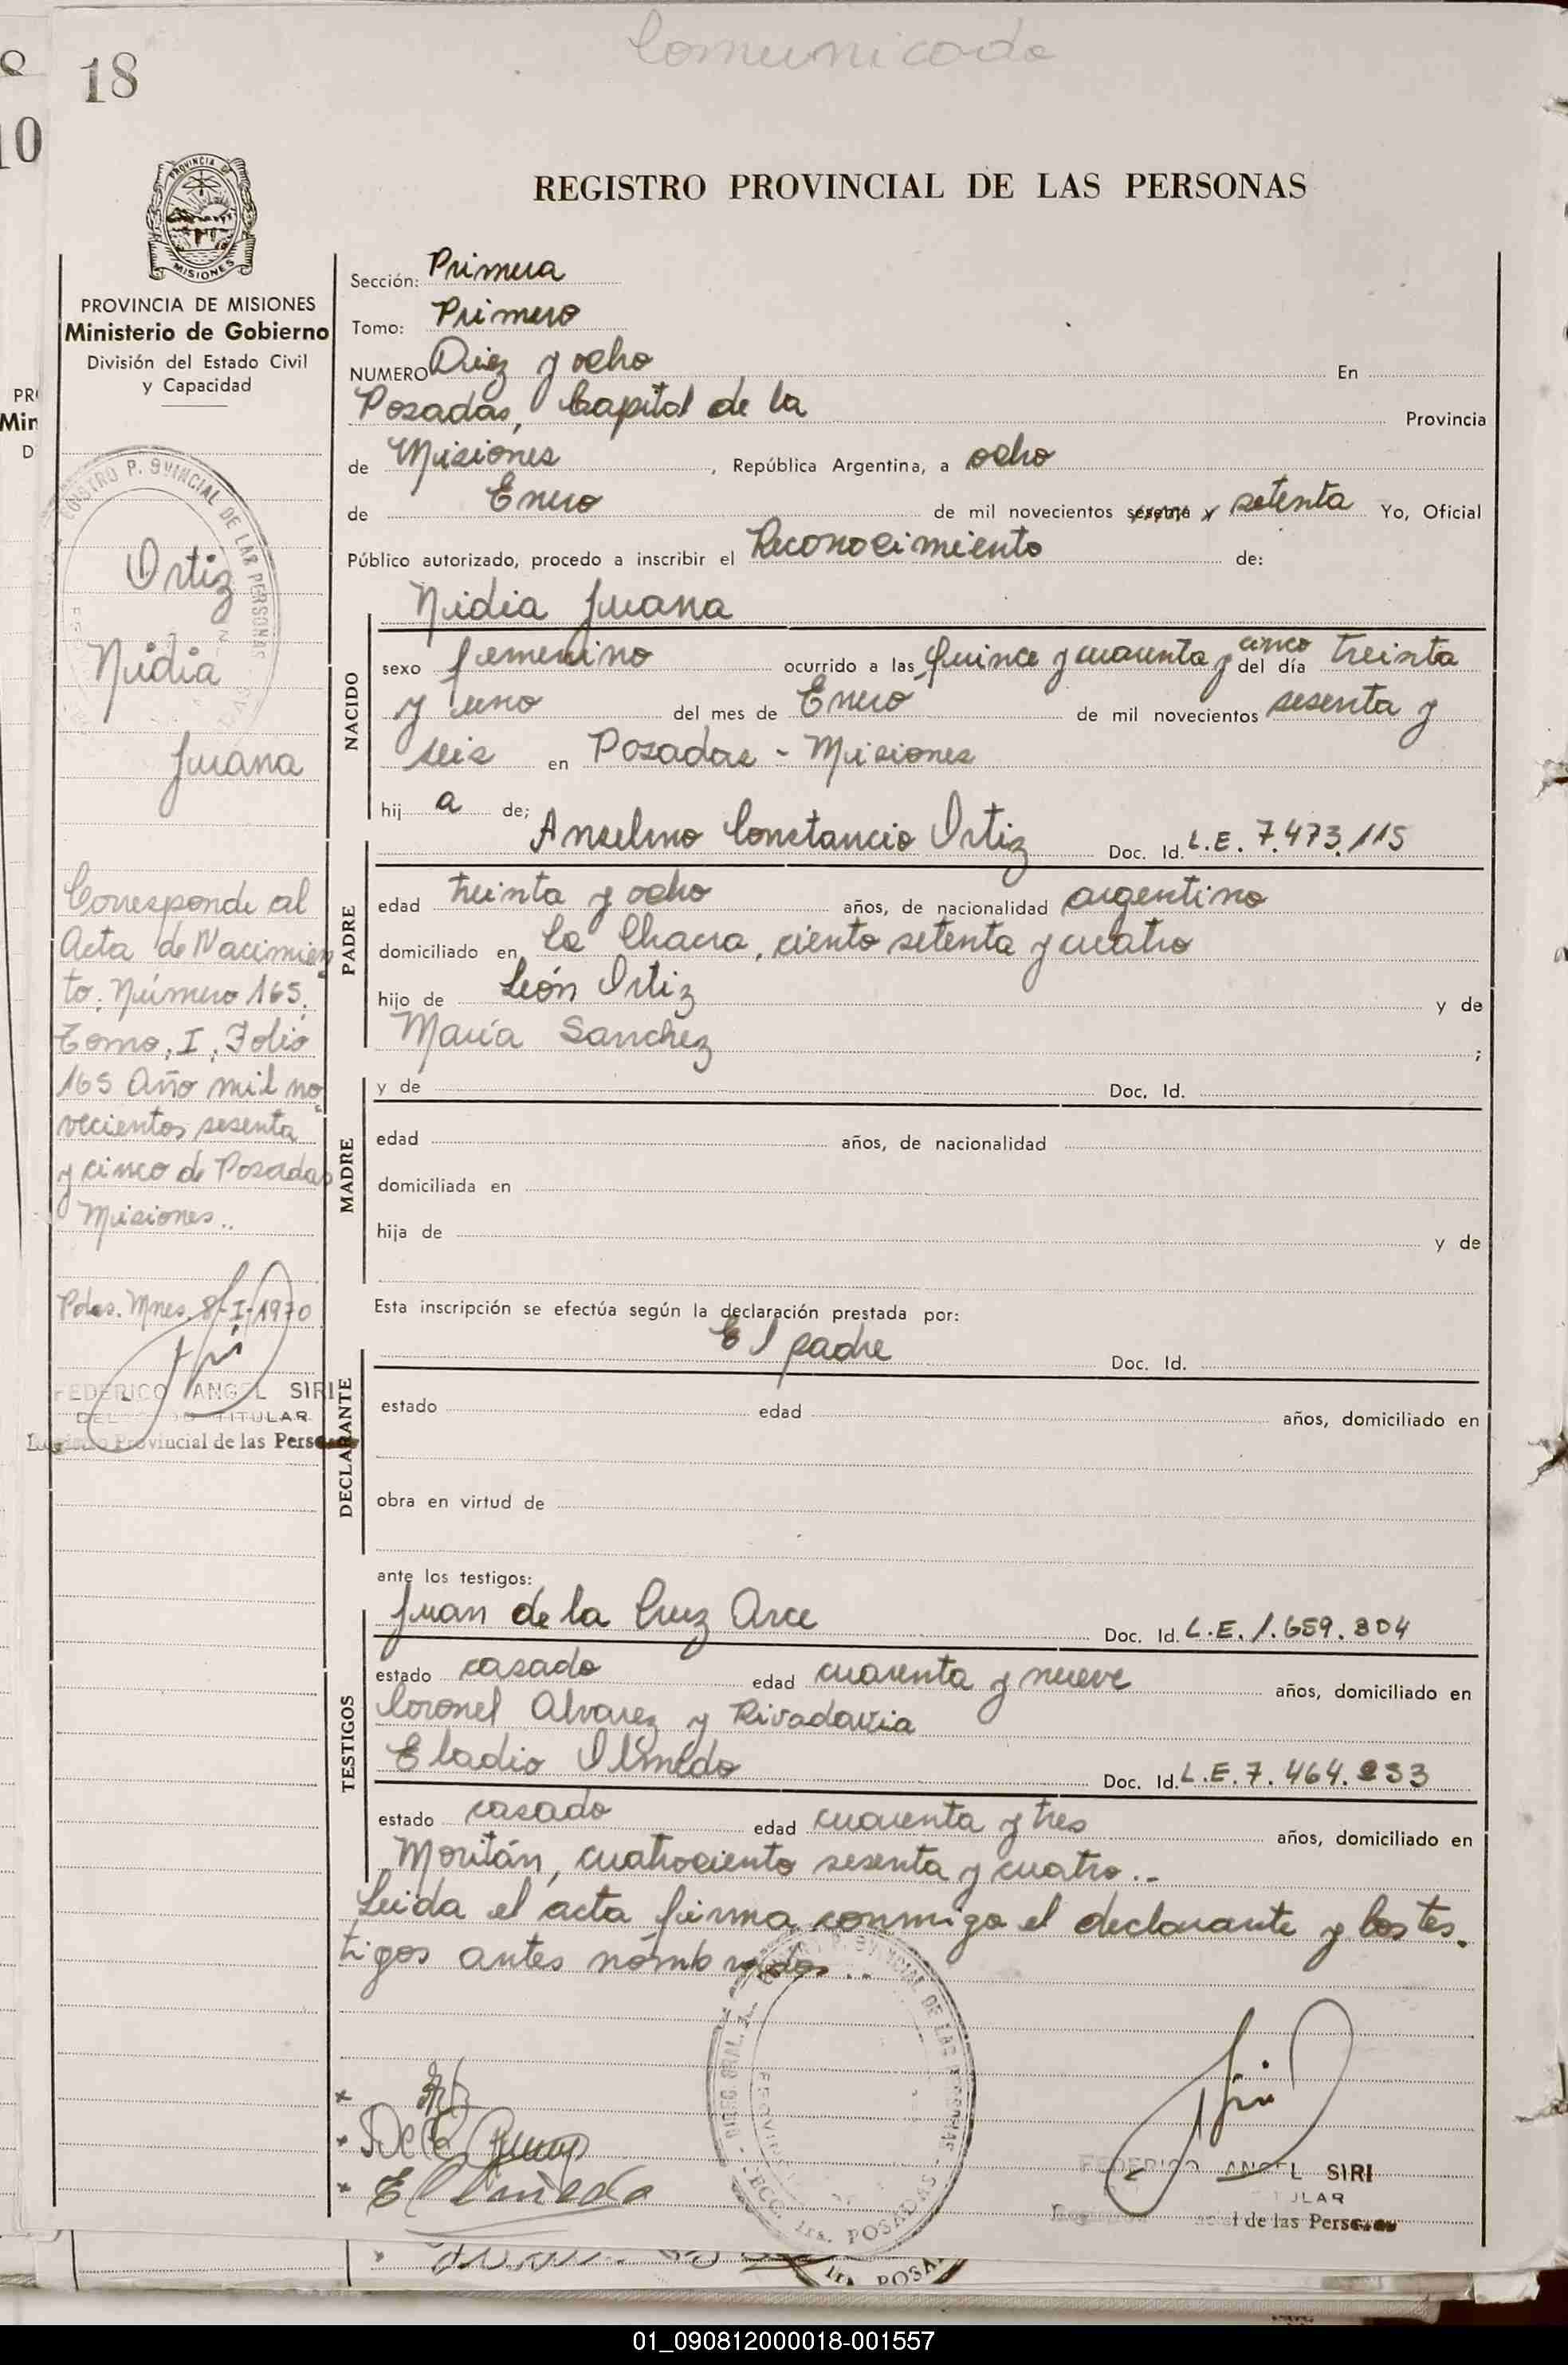 Comunicado
18
10
PROVINCIA DE
MISIONES
REGISTRO PROVINCIAL DE LAS PERSONAS
PROVINCIA DE MISIONES
Ministerio de Gobierno
División del Estado Civil
y Capacidad
Sección: Primera
Tomo: Primero
NUMERO Diez y ocho En
Posadas, Capital de la Provincia
de Misiones, República Argentina, a ocho
de Enero de mil novecientos setenta Yo, Oficial
Público autorizado, procedo a inscribir el Reconocimiento de:
Nidia Juana
NACIDO
sexo femenino ocurrido a las quince y cuarenta y cinco del día treinta
y uno del mes de Enero de mil novecientos sesenta y
seis en Posadas - Misiones
hij a de;
Anselmo Constancio Ortiz Doc. Id. L.E. 7.473.115
PADRE
edad treinta y ocho años, de nacionalidad argentino
domiciliado en La Chacra, ciento setenta y cuatro
hijo de León Ortiz y de
María Sanchez ;
MADRE
y de Doc. Id.
edad años, de nacionalidad
domiciliada en
hija de y de
Esta inscripción se efectúa según la declaración prestada por:
El padre Doc. Id.
DECLARANTE
estado edad años, domiciliado en
obra en virtud de
ante los testigos:
Juan de la Cruz Arce Doc. Id. L.E. 1.659.804
TESTIGOS
estado casado edad cuarenta y nueve años, domiciliado en
Coronel Alvarez y Rivadavia
Eladio Olmedo Doc. Id. L.E. 7.464.233
estado casado edad cuarenta y tres años, domiciliado en
Moritán, cuatrociento sesenta y cuatro..
Leida el acta firma conmigo el declarante y los tes.
tigos antes nombrados..
Ortiz
Nidia
Juana
Corresponde al
Acta de Nacimien
to. Número 165.
Tomo, I, Folio
165 Año mil no
vecientos sesenta
y cinco de Posadas
Misiones..
Pdas. Mnes. 8-I-1970
FEDERICO ANGEL SIRI
TITULAR
Registro Provincial de las Personas
E Olmedo
FEDERICO ANGEL SIRI
de las Personas
01_090812000018-001557